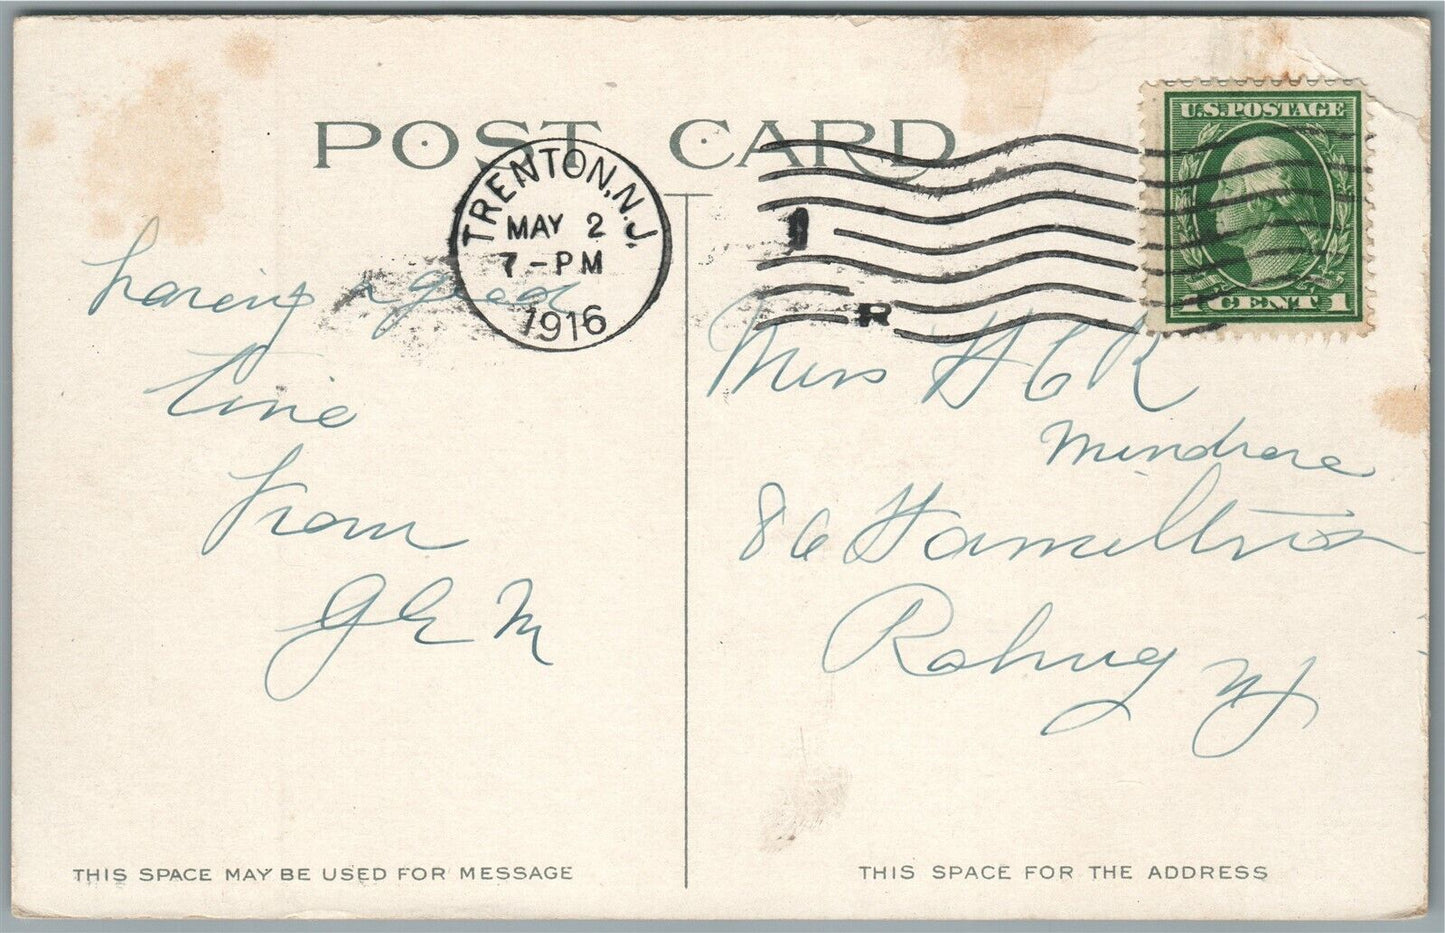 POST CARD
TRENTON, N.J.
MAY 2
7-PM
1916
R
U.S. POSTAGE
1 CENT 1
having a good
time
from
G E M
Miss H C R
86 Hamilton
Rahway NJ
THIS SPACE MAY BE USED FOR MESSAGE
THIS SPACE FOR THE ADDRESS